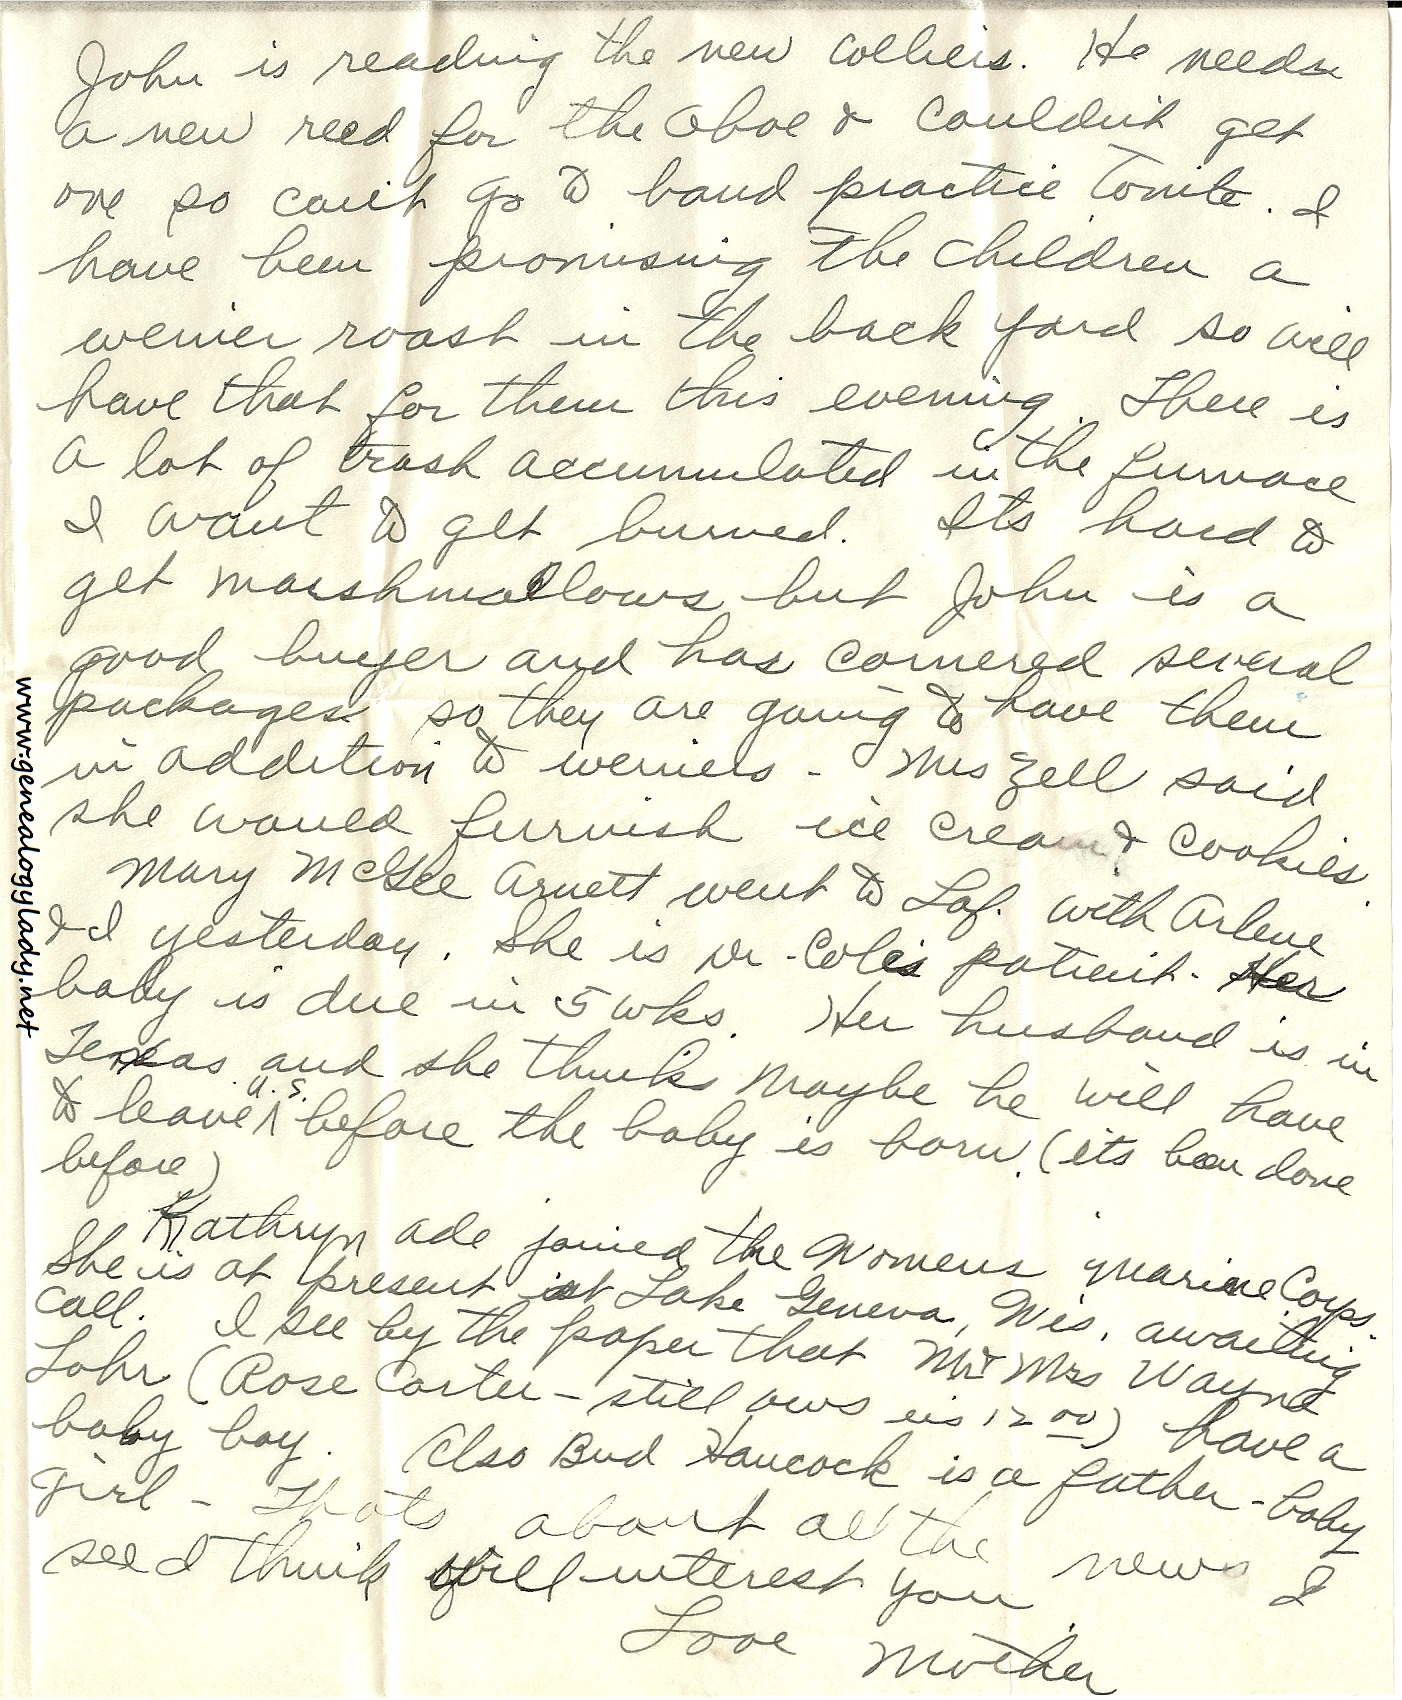 John is reading the new Colliers. He needs
a new reed for the oboe & couldn't get
one so can't go to band practice tonite. I
have been promising the children a
weiner roast in the back yard so will
have that for them this evening. There is
a lot of trash accumulated in the furnace
I want to get burned. Its hard to
get marshmallows but John is a
good buyer and has cornered several
packages so they are going to have them
in addition to weiners - Mrs Zell said
she would furnish ice cream & cookies.
Mary McGee Arnett went to Laf. with Arlene
& I yesterday. She is Dr. Coles patient. Her
baby is due in 5 wks. Her husband is in
Texas and she thinks maybe he will have
to leave U.S. before the baby is born. (its been done
before)
Kathryn Ade joined the Womens Marine Corps.
She is at present at Lake Geneva, Wis. awaiting
call. I see by the paper that Mr & Mrs Wayne
Lohr (Rose Carter - still ows us 12 00) have a
baby boy. Also Bud Hancock is a father - baby
girl - Thats about all the news I
see I think will interest you.
Love Mother
www.genealogylady.net